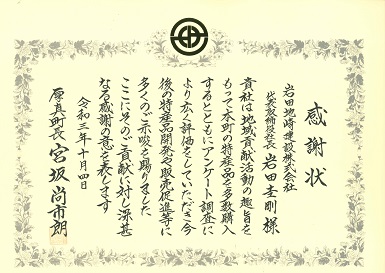 感謝状
岩田地崎建設株式会社
代表取締役社長 岩田圭剛様
貴社は地域貢献活動の趣旨を
もって本町の特産品を多数購入
するとともにアンケート調査に
より広く評価をしていただき今
後の特産品開発や販売促進等に
多くのご示唆を賜りました
ここにそのご貢献に対し深甚
なる感謝の意を表します
令和三年十月四日
厚真町長 宮坂尚市朗